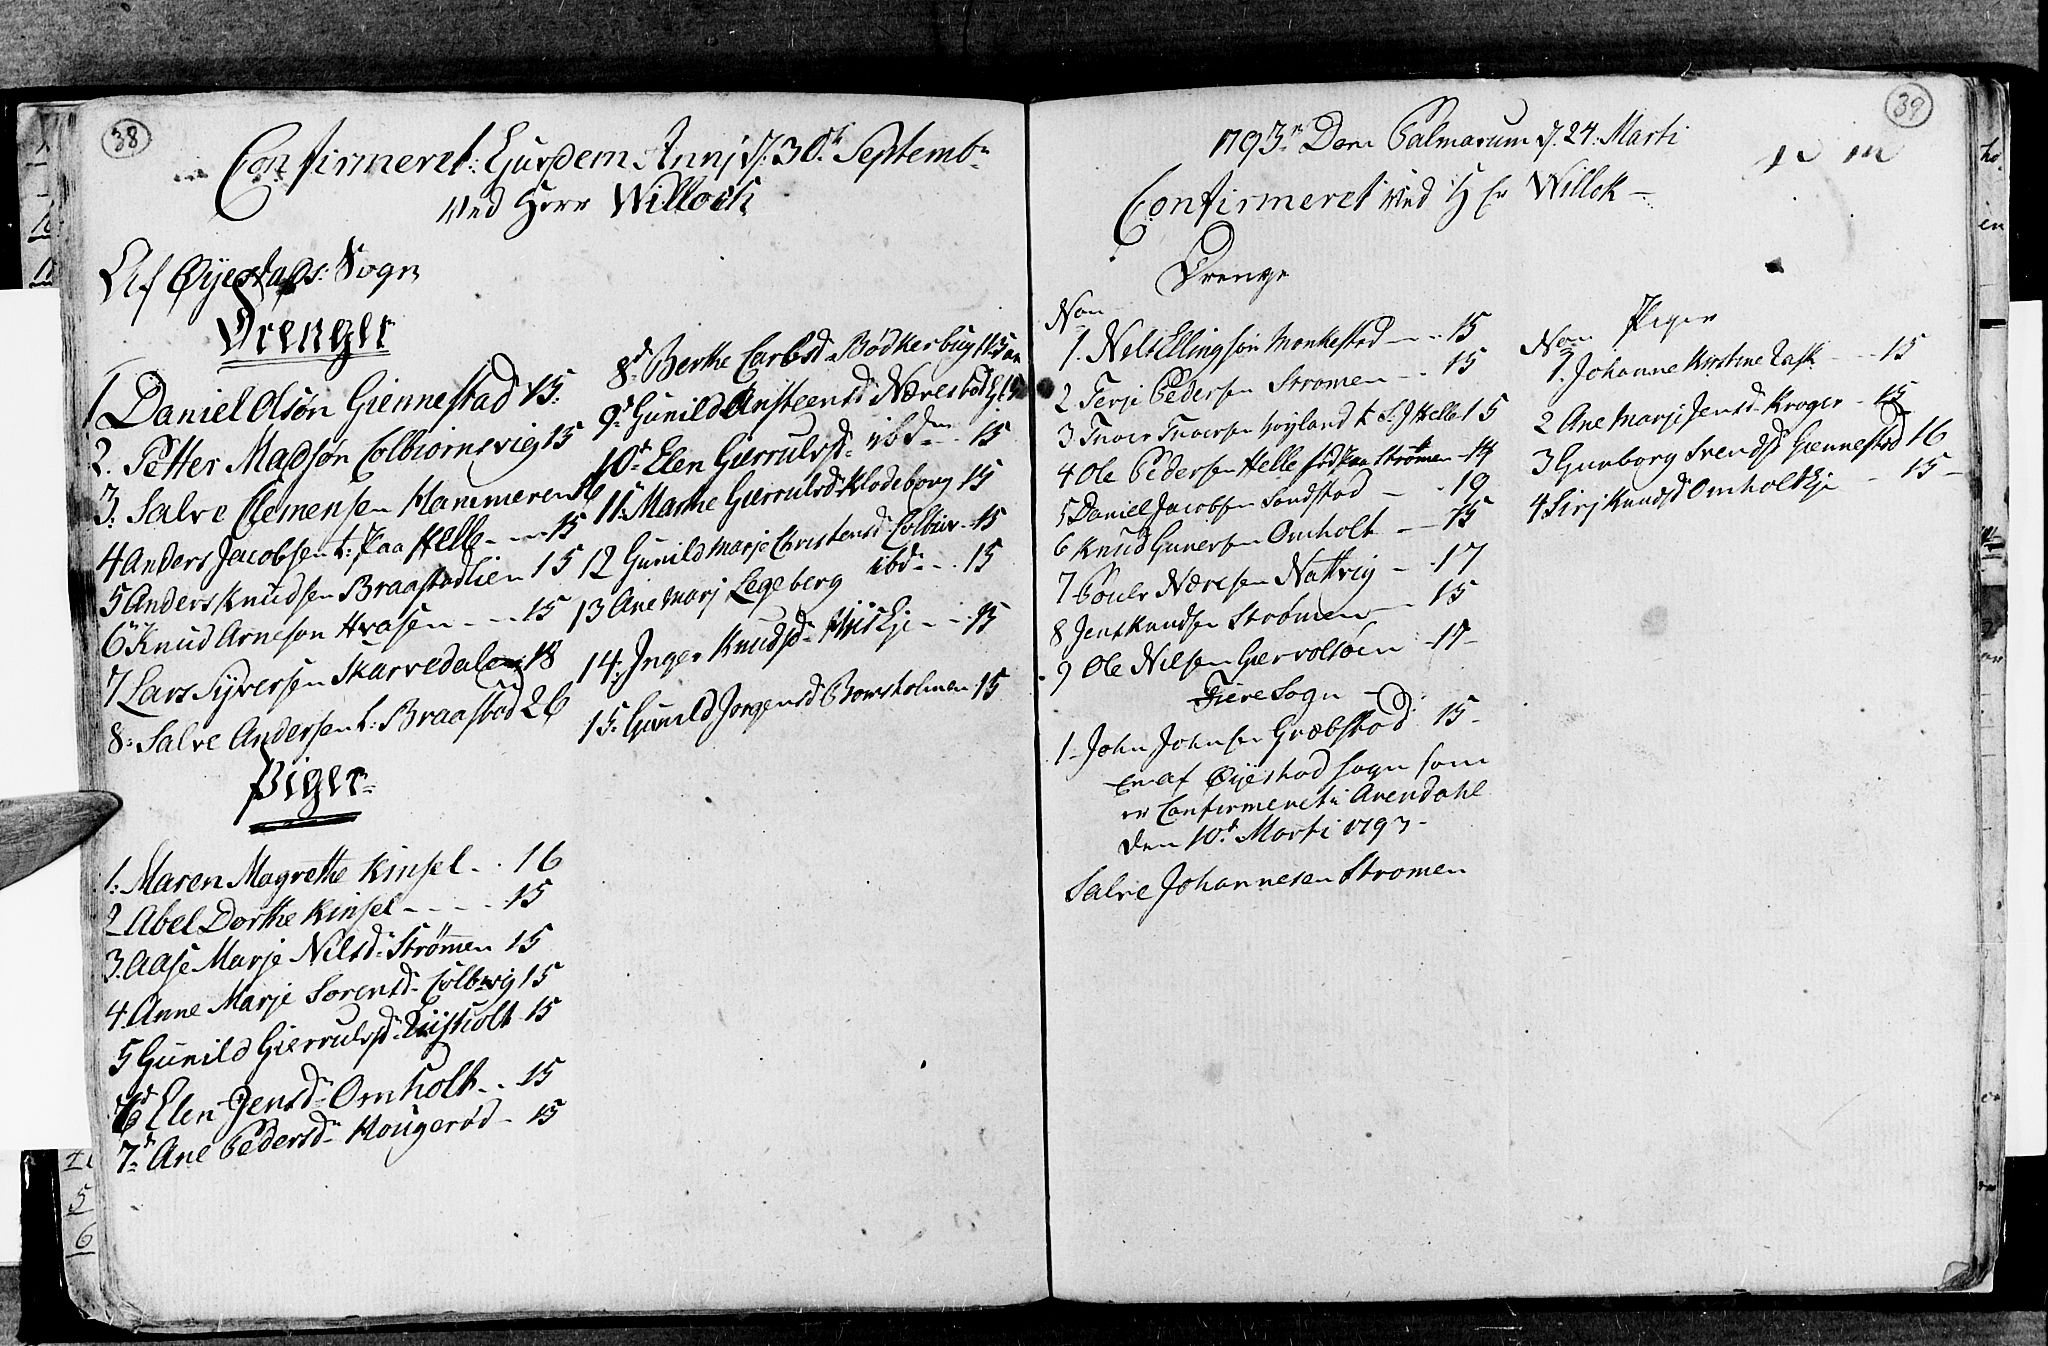 38
Confirmeret: Eusdem Anni d: 30te Septembr
ved Herr Willock
Af Øyestads: Sogn
Drenger
1 Daniel Olsøn Giennestad 15:
2. Petter Madsøn Colbiørnsvig 15
3. Salve Clemensen Hammeren 16
4 Anders Jacobsen t: Paa Helle - - - 15
5 Anders Knudsen Braastadlien 15
6 Knud Arneson Hvasen - - - 15
7 Lars Syversen Skarvedalen 18
8: Salve Andersen t: Braastad 26
Piger
1: Maren Magrethe Kinsel - . 16
2 Abel Dorthe Kinsel - - - - 15
3. Aase Marje Nilsd: Strømen 15
4. Anne Marje Sorensd: Colb:vig 15
5 Gunild Gierrulvsd: 15
6 Elen Jensd: Omholt - - 15
7 Ane Pedersd: Hougerød - 15
8d Berthe Carlsd: Bødkerbug
9d Gunild Ansteensd Nærestad
10d Elen Gierrulvsd: ibd - 15
11: Marthe Gierrulvsd Klodeborg 15
12 Gunild Marje Christensd Colbiør - 15
13 Ane Marj Legeberg ibd - . 15
14: Inger Knudsd: - - 15
15: Gunild Jorgensd Broersholmen 15
39
1793 Dom Palmarum d. 24. Marti
Confirmeret ved Hr Willok -
Drenge
Non
1. Nils Ellingsøn Monkestad - - 15
2 Terje Pedersen Stromen - - 15
3 Tver Tversen Høyland t. Helle 15
4 Ole Pedersen Helle Paa Strømen - 19
5 Daniel Jacobsen Sandstad - . 19
6 Knud Gunersen Omholt - - 15
7 Povler Næresen Nattvig - . 17
8 Jens Knudsen Strømen - 15
9 Ole Nilsen Giervoldsøen - 17 -
Fiere Sogn
1 - John Johnsen Græbstad 15 -
En af Øyestad Sogn som
er Confirmeret i Arendahl
den 10d Marti 1793 -
Salve Johannesen Stromen
Piger
Non
1. Johanne Kirstine Lasf - - 15
2 Ane Marje Jensd: Kroger - 15
3 Gunborg Svendsd Giennestad 16
4 Sirj Knudsd Omholtkje - 15 -